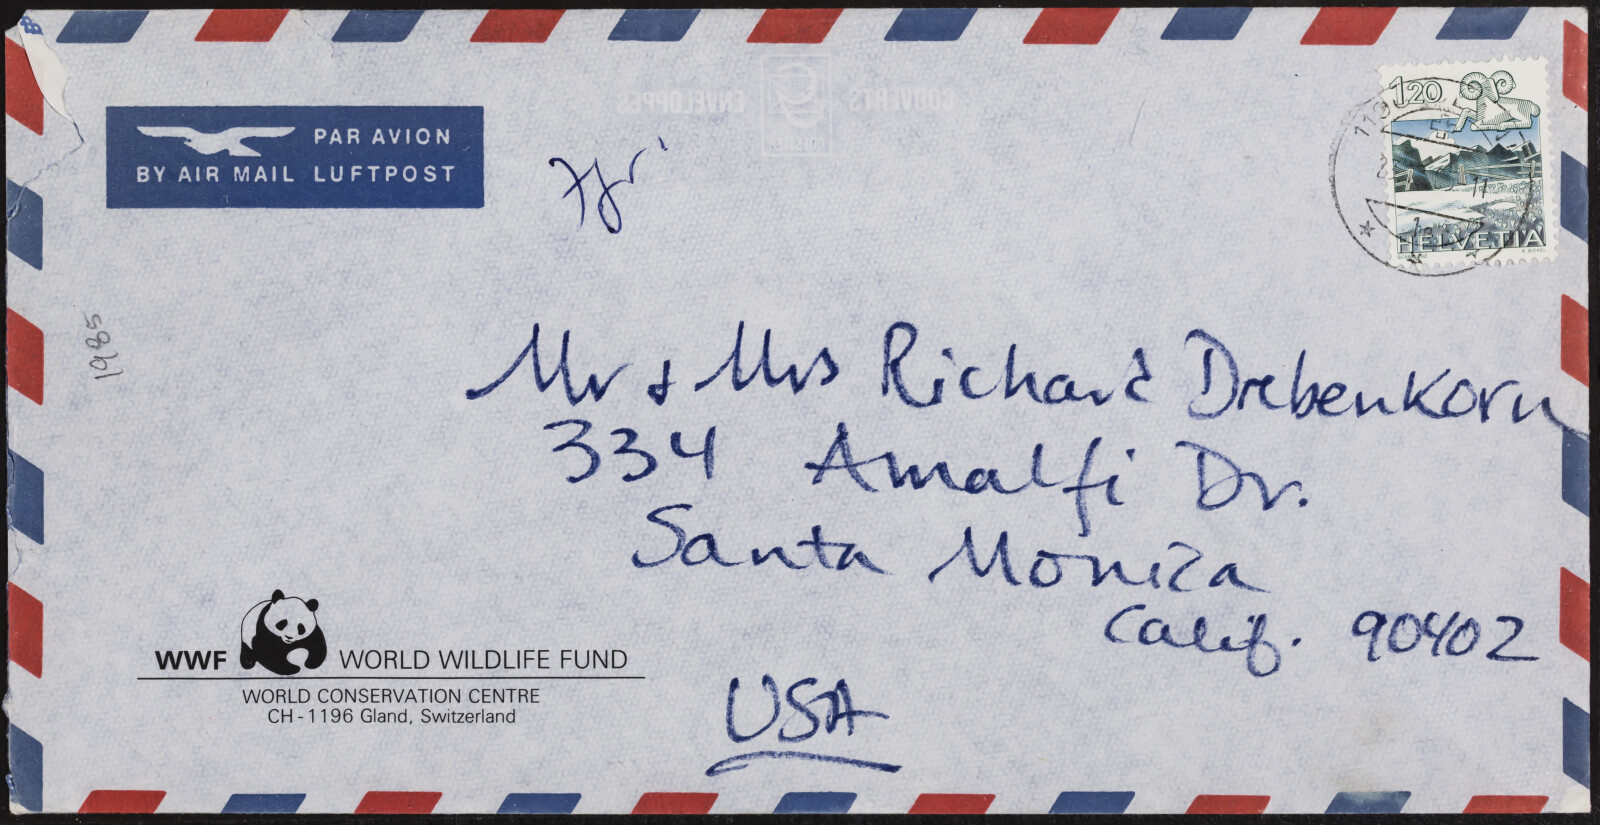 PAR AVION
BY AIR MAIL LUFTPOST
COUVERTS ENVELOPPES
1.20
HELVETIA
1985
Mr & Mrs Richard Diebenkorn
334 Amalfi Dr.
Santa Monica
Calif. 90402
USA
WWF WORLD WILDLIFE FUND
WORLD CONSERVATION CENTRE
CH-1196 Gland, Switzerland